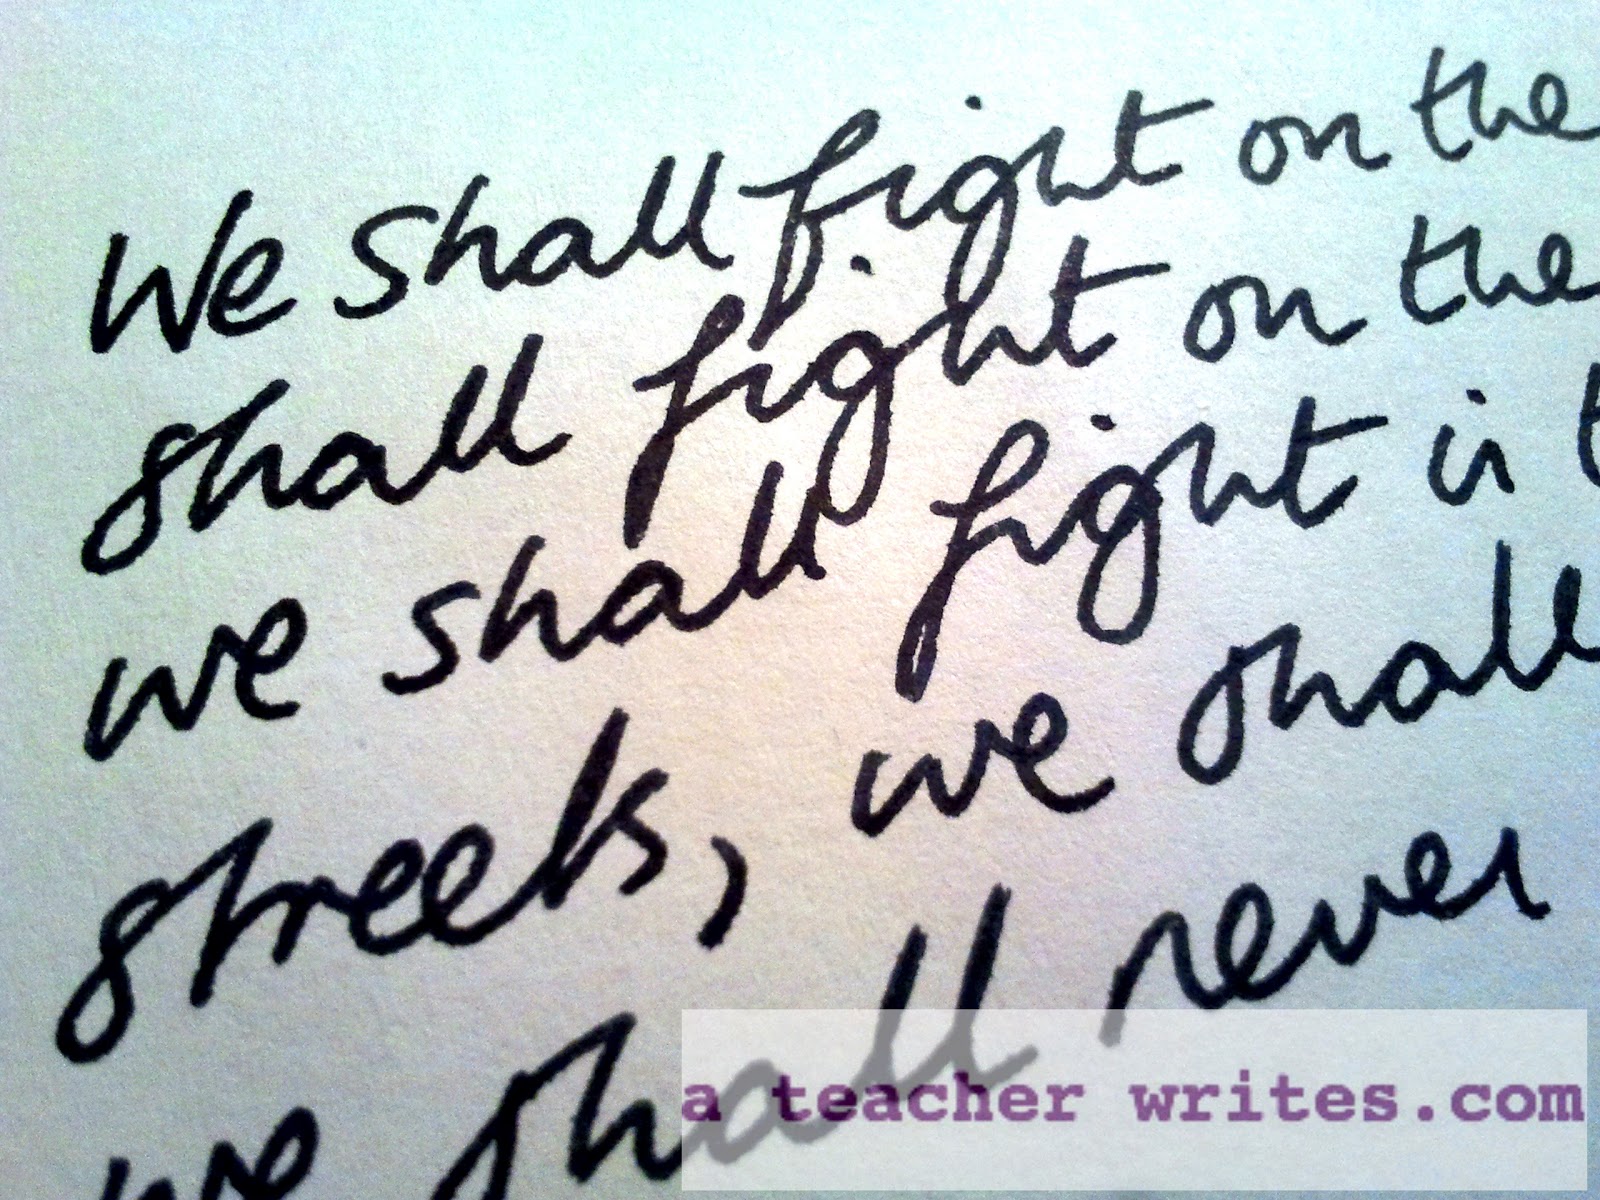 We shall fight on the
shall fight on the
we shall fight in t
streets, we shall
we shall never
a teacher writes.com